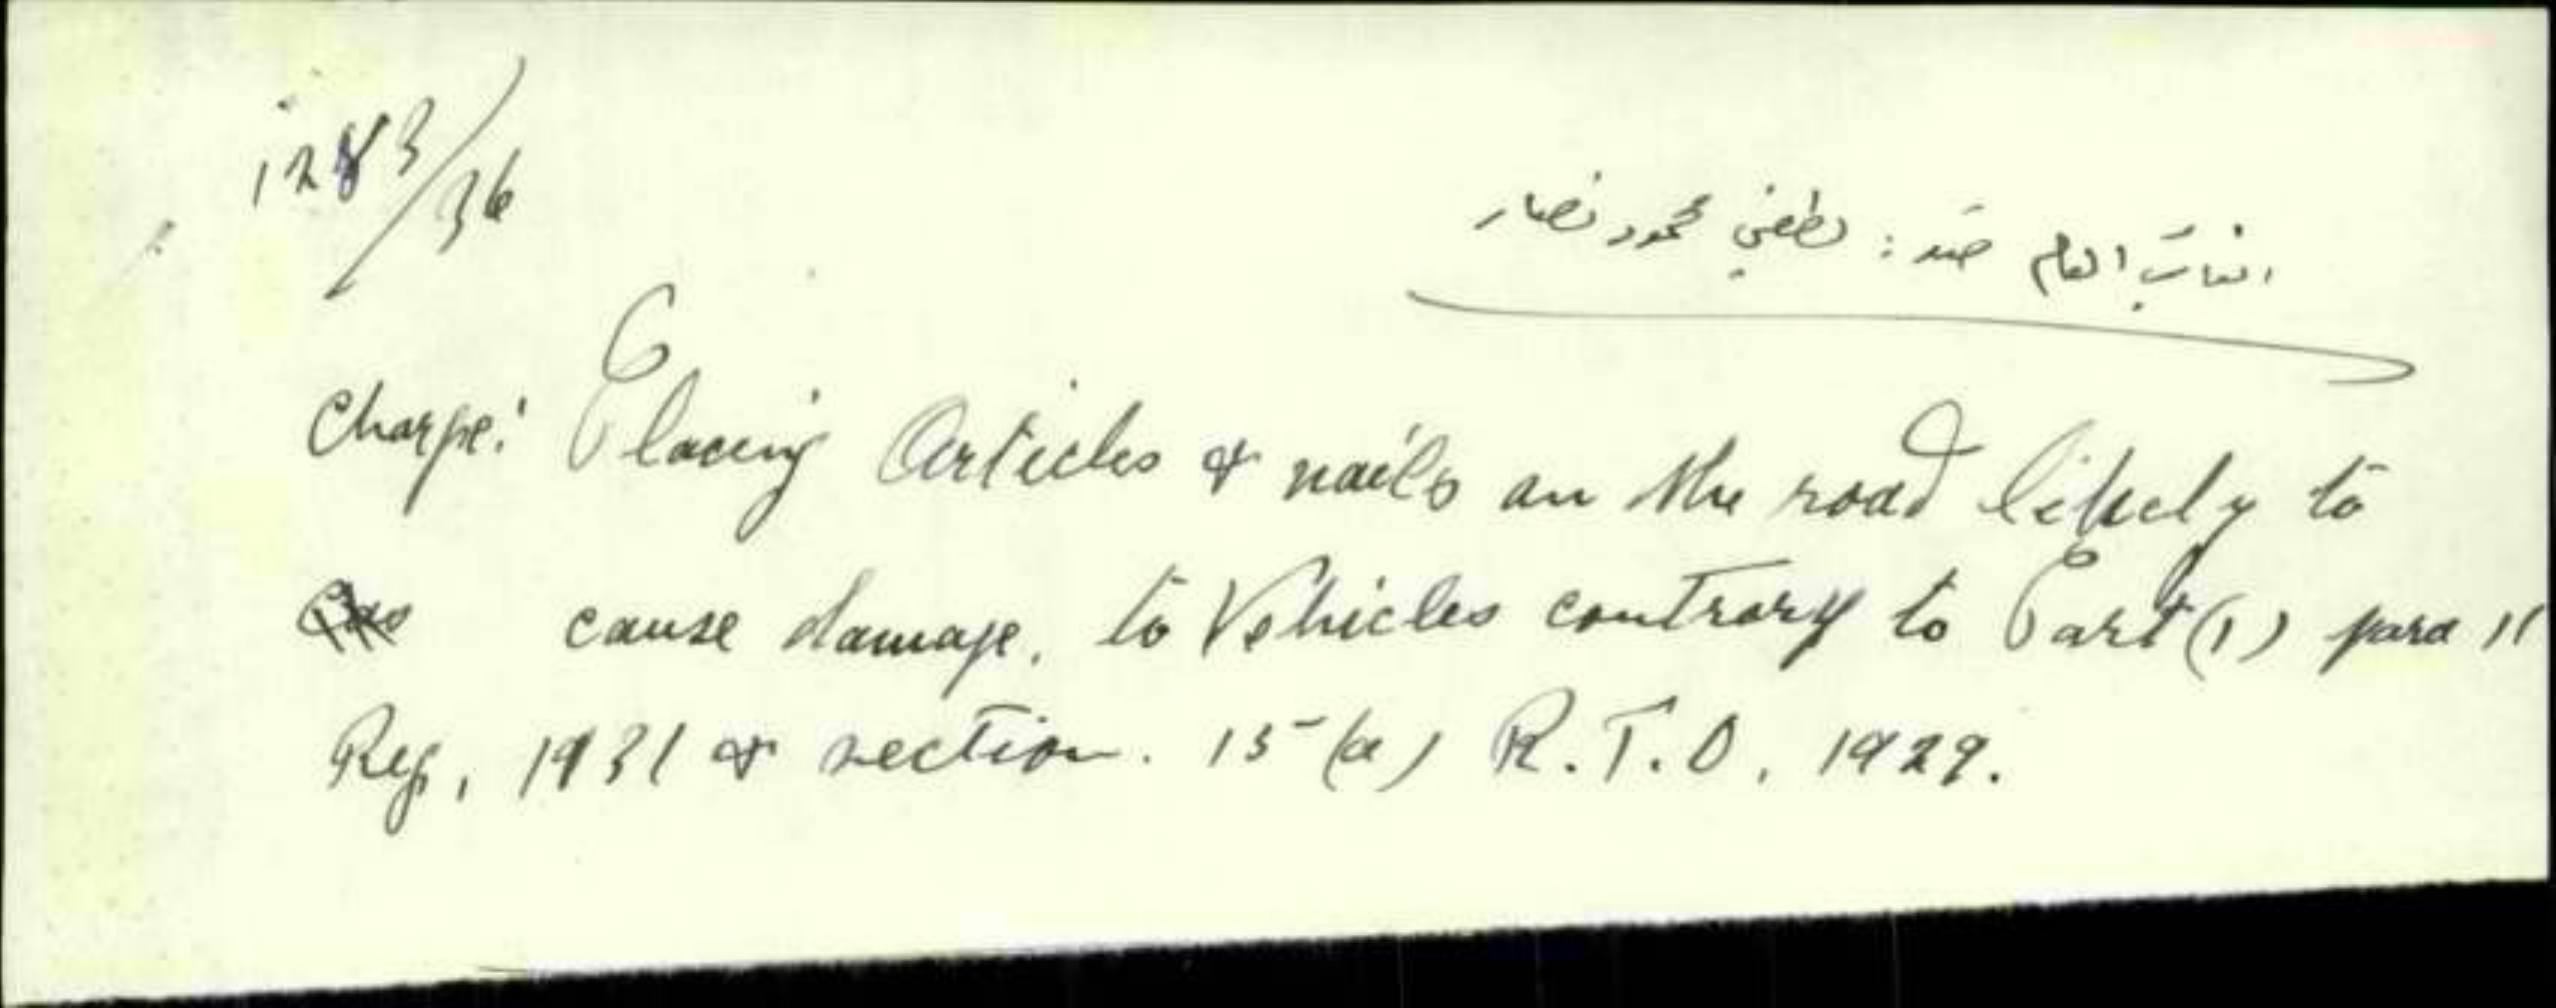 1283/36
النائب العام ضد : لطفي محمود نصار
Charge: Placing Articles & nails on the road likely to
cause damage, to Vehicles contrary to Part (1) para 11
Reg, 1931 & section. 15 (a) R.T.O, 1929.